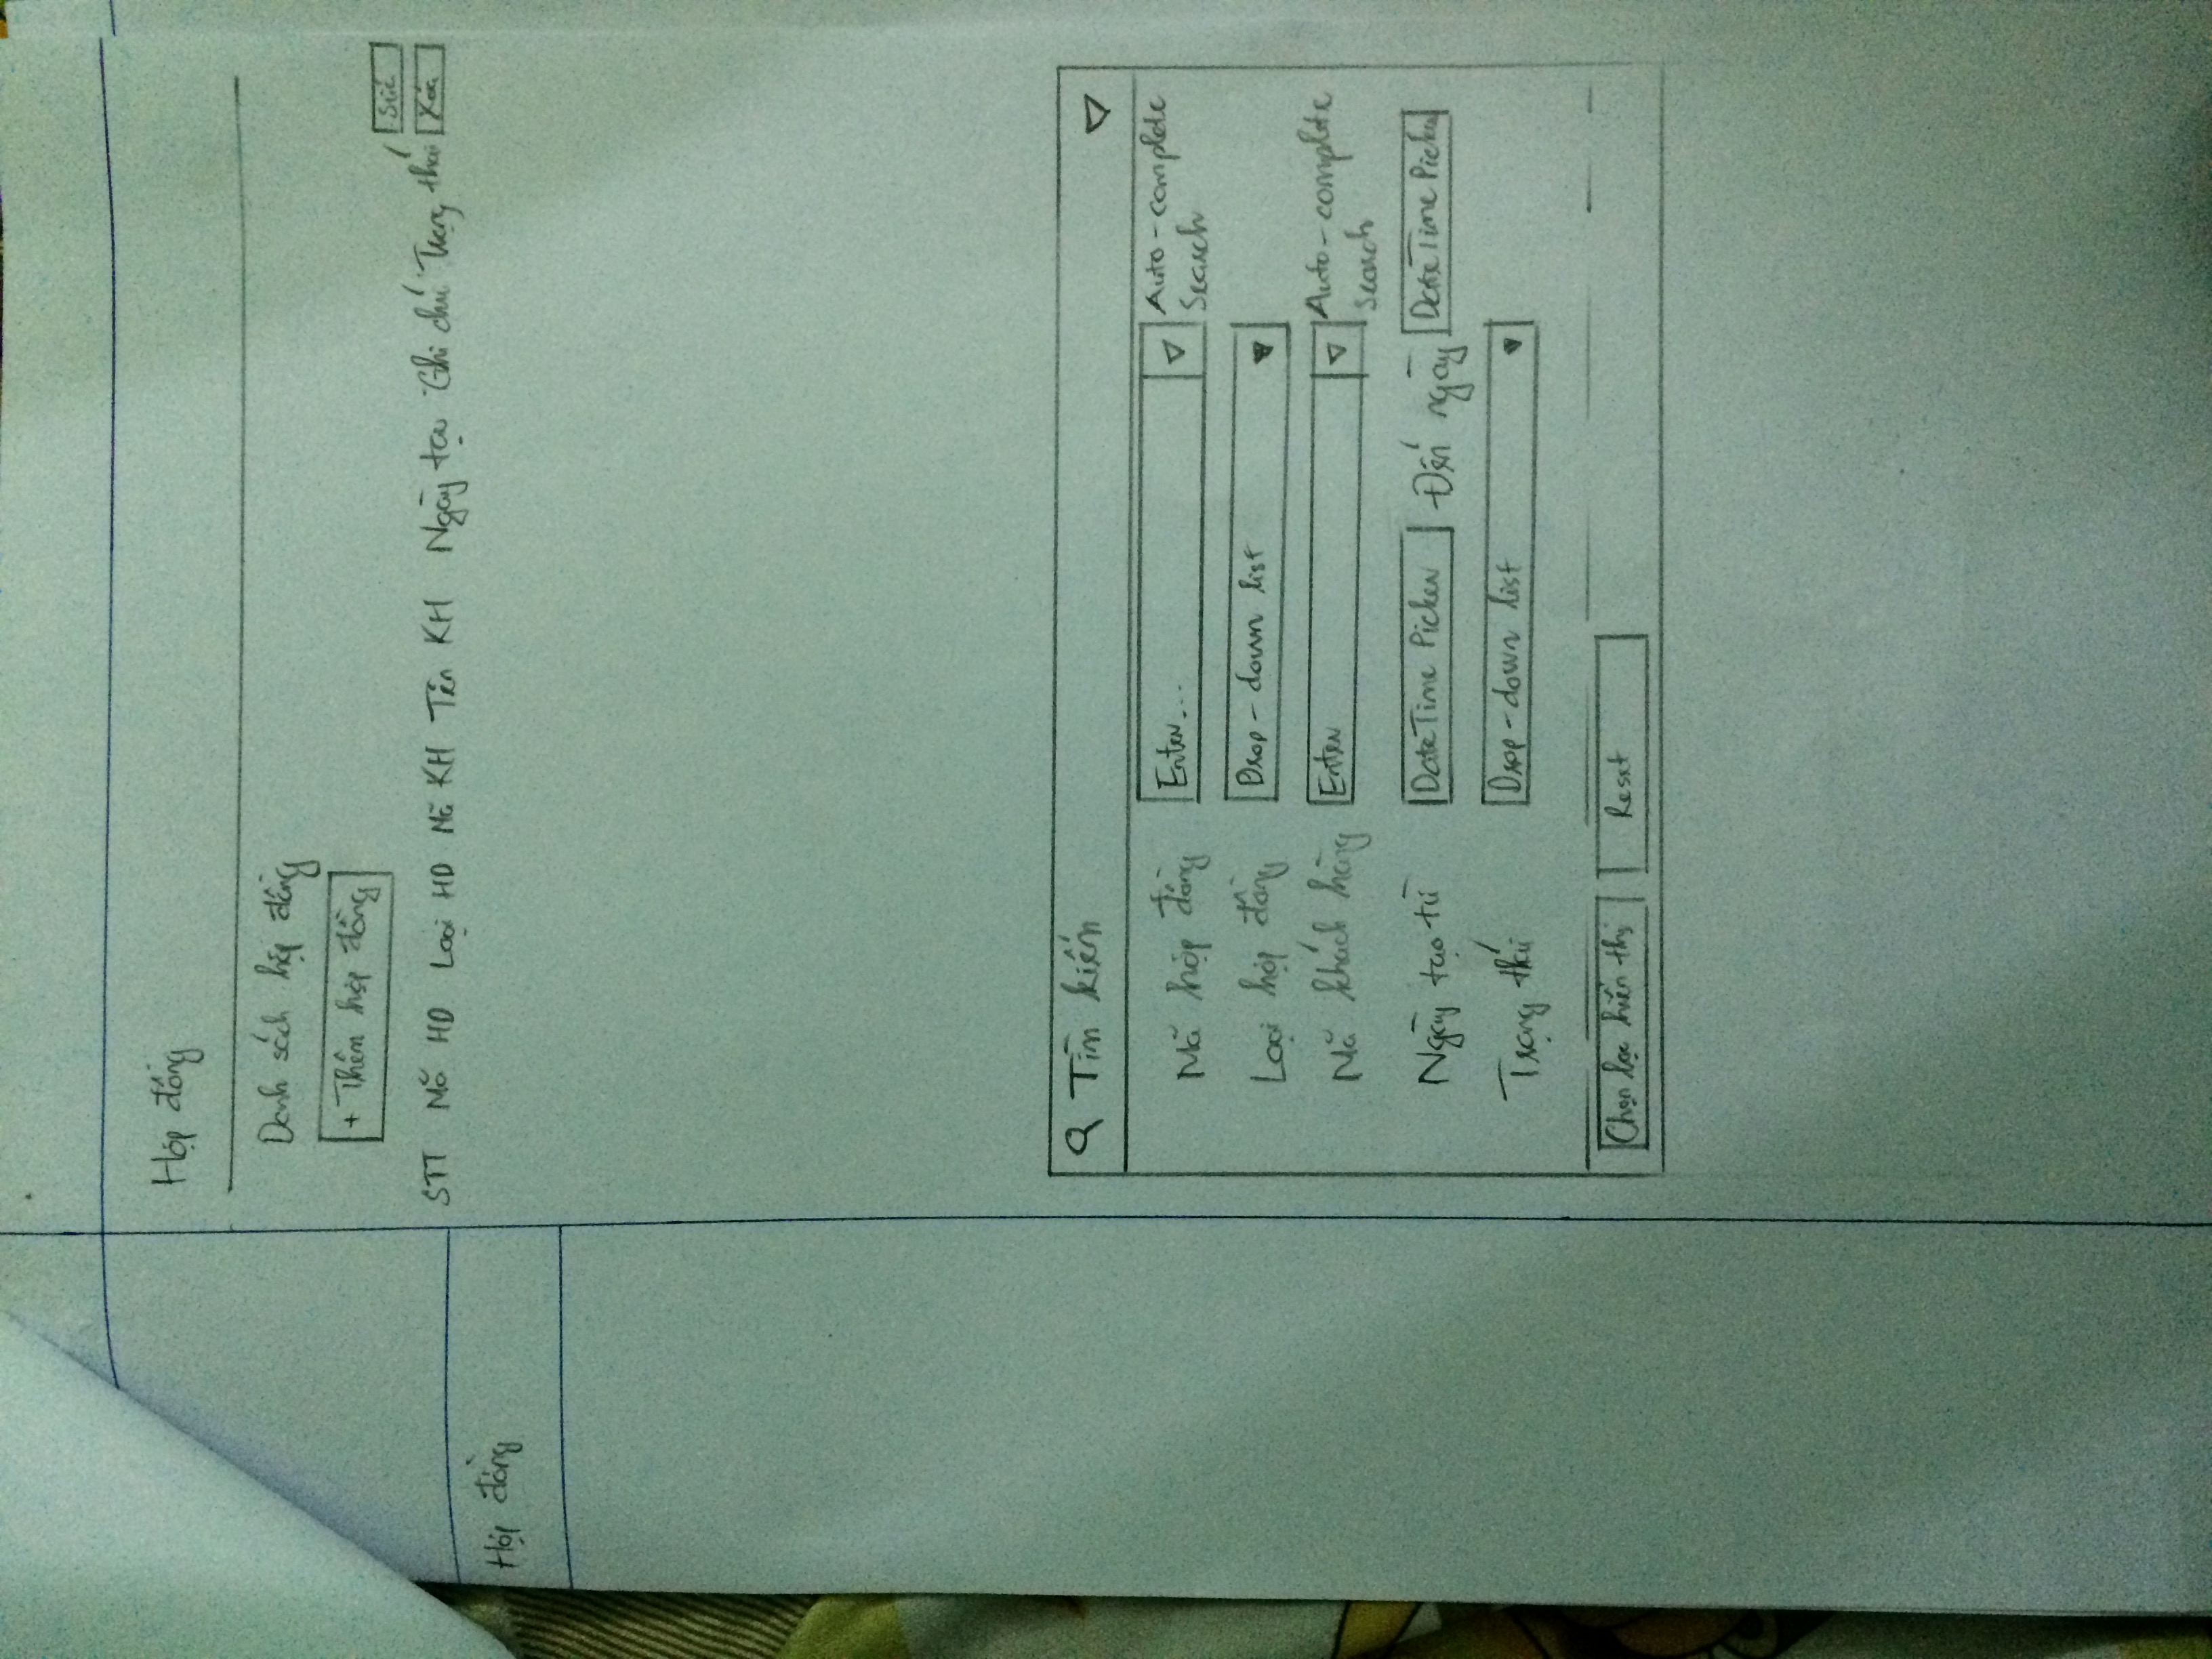 Hợp đồng
Danh sách hợp đồng
+ Thêm hợp đồng
Sửa
STT Mã HD Loại HD Mã KH Tên KH Ngày tạo Ghi chú Trạng thái Xóa
Hợp đồng
Tìm kiếm
Mã hợp đồng Enter... Auto-complete
Search
Loại hợp đồng Drop-down list
Mã khách hàng Enter Auto-complete
Search
Ngày tạo từ DateTime Picker Đến ngày DateTime Picker
Trạng thái Drop-down list
Chọn lọc hiển thị Reset